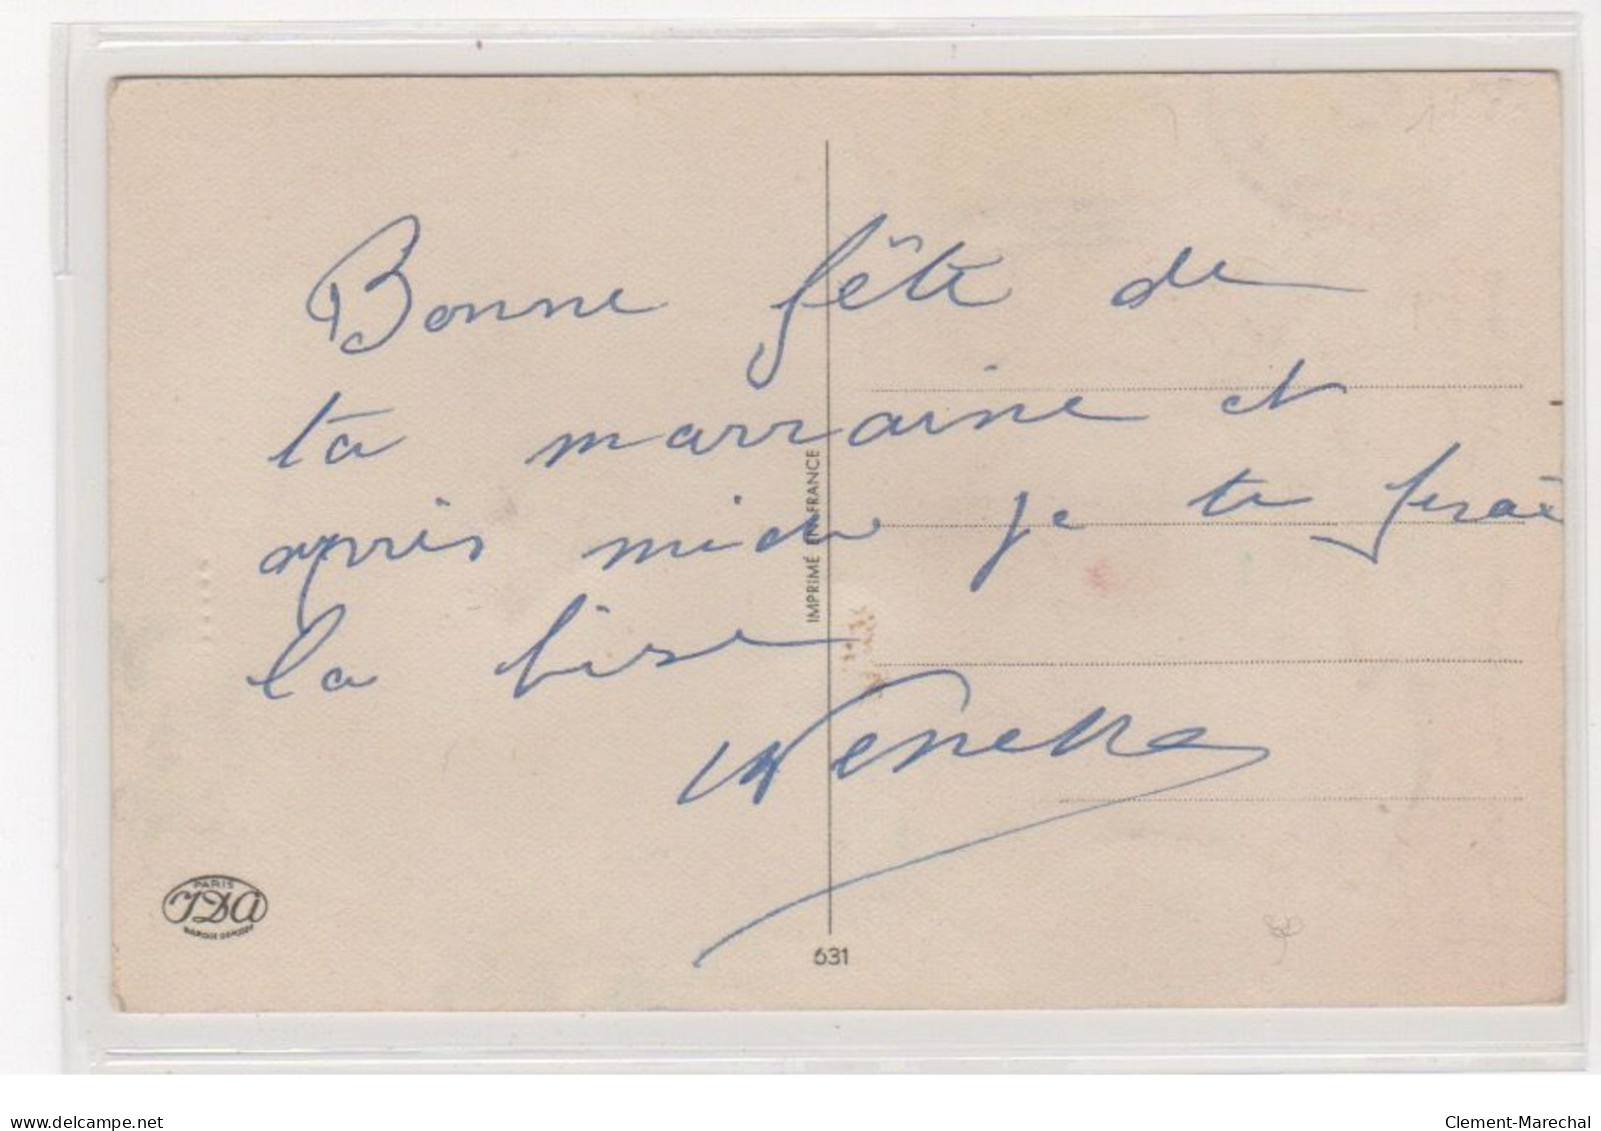 Bonne fête de
ta marraine et
après midi je te ferai
la bise
IMPRIMÉ EN FRANCE
PARIS
IDA
MARQUE DÉPOSÉE
631
delcampe.net
Clement-Marechal